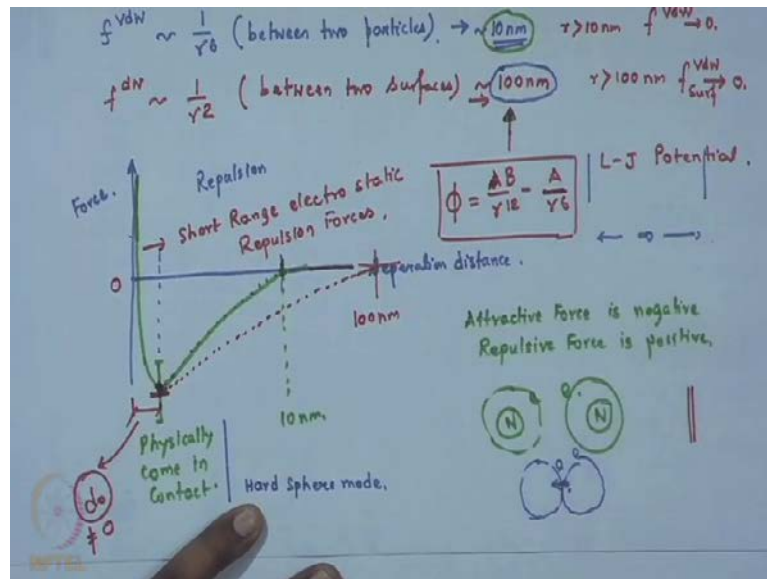 f^vdw ~ 1/r6 (between two particles). → ~ 10nm r>10nm f^vdw → 0.
f^dw ~ 1/r2 (between two surfaces) ~ 100nm r>100nm f^vdw surf → 0.
Force.
Repulsion
→ Short Range electro static
Repulsion Forces.
ϕ = AB/r12 - A/r6
L-J Potential.
← ∞ →
0
Seperation distance.
100nm
10nm.
Attractive Force is negative
Repulsive Force is positive.
e e
N N
Physically
come in
Contact.
Hard Sphere mode.
do
≠0
NPTEL